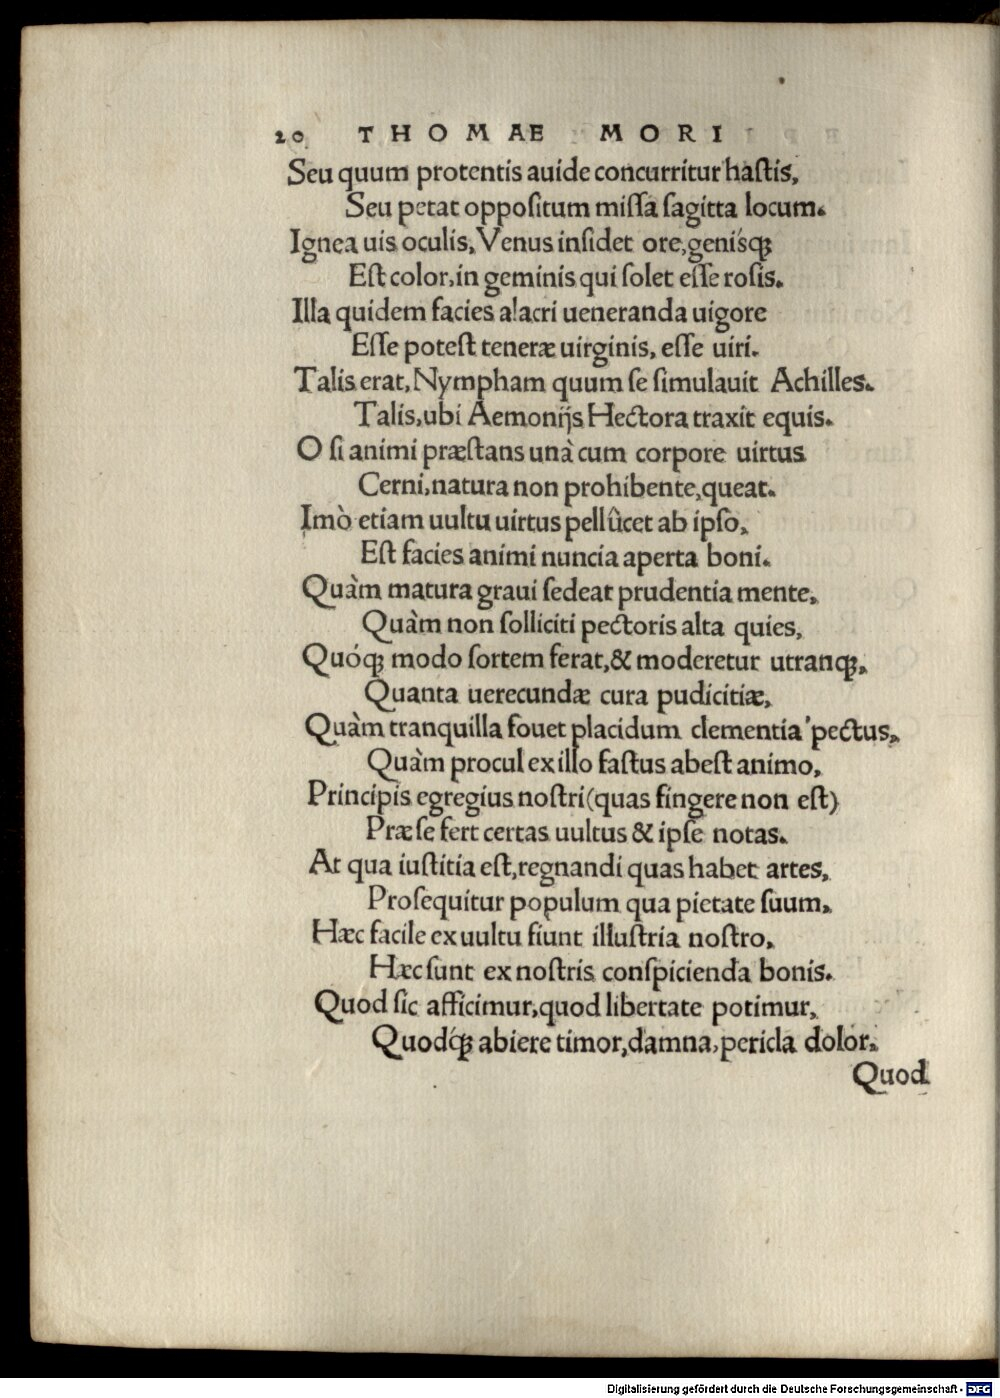 20 THOMAE MORI
Seu quum protentis auide concurritur haſtis,
Seu petat oppoſitum miſſa ſagitta locum.
Ignea uis oculis, Venus inſidet ore, geniśqꝫ
Eſt color, in geminis qui ſolet eſſe roſis.
Illa quidem facies alacri ueneranda uigore
Eſſe poteſt teneræ uirginis, eſſe uiri.
Talis erat, Nympham quum ſe ſimulauit Achilles.
Talis, ubi Aemonijs Hectora traxit equis.
O ſi animi præſtans unà cum corpore uirtus
Cerni, natura non prohibente, queat.
Imò etiam uultu uirtus pellûcet ab ipſo,
Eſt facies animi nuncia aperta boni.
Quàm matura graui ſedeat prudentia mente,
Quàm non ſolliciti pectoris alta quies,
Quóqꝫ modo ſortem ferat, & moderetur utranqꝫ,
Quanta uerecundæ cura pudicitiæ,
Quàm tranquilla fouet placidum clementia pectus,
Quàm procul ex illo faſtus abeſt animo,
Principis egregius noſtri (quas fingere non eſt)
Præ ſe fert certas uultus & ipſe notas.
At qua iuſtitia eſt, regnandi quas habet artes,
Proſequitur populum qua pietate ſuum,
Hæc facile ex uultu fiunt illuſtria noſtro,
Hæc ſunt ex noſtris conſpicienda bonis.
Quod ſic afficimur, quod libertate potimur,
Quod́qꝫ abiere timor, damna, pericla dolor.
Quod
Digitalisierung gefördert durch die Deutsche Forschungsgemeinschaft - DFG